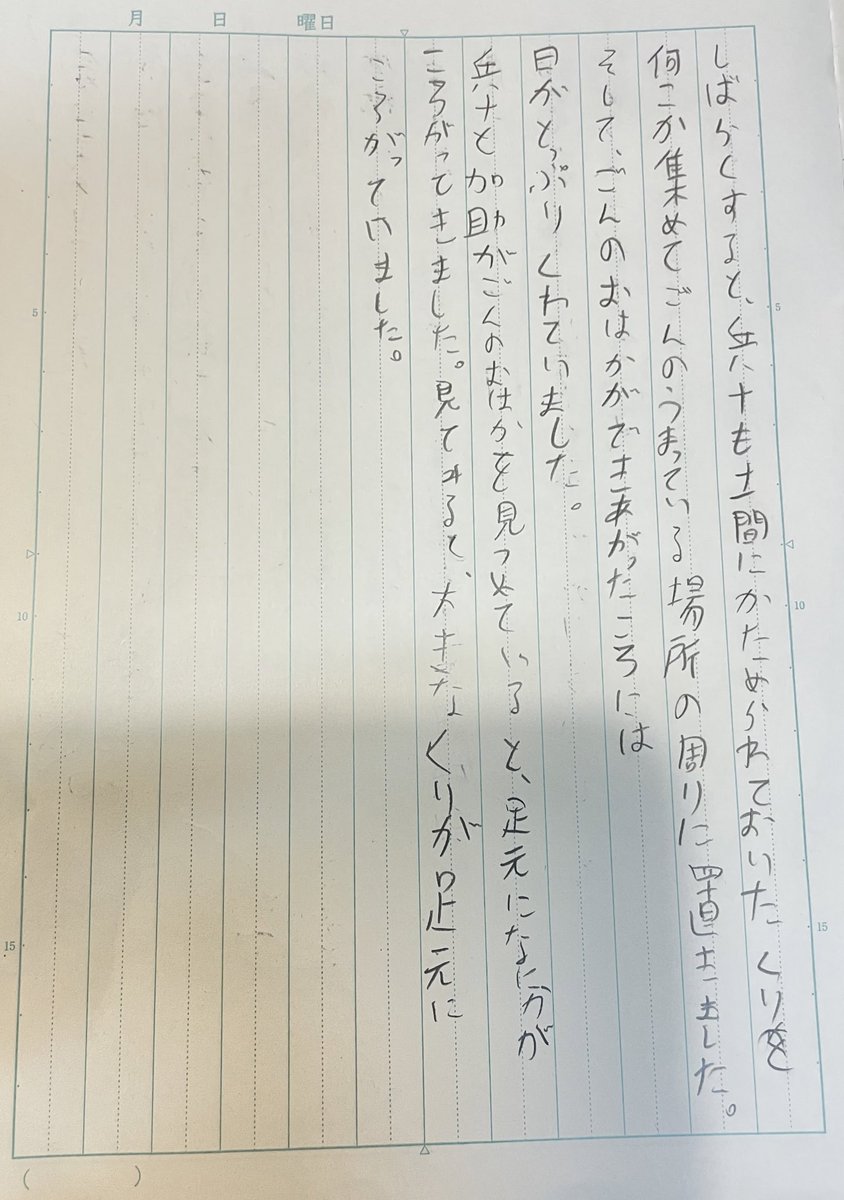 月 日 曜日
しばらくすると、兵十も土間にかためられておいたくりを
何こか集めてごんのうまっている場所の周りに置きました。
そして、ごんのおはかができあがったころには
日がとっぷりくれていました。
兵十と加助がごんのおはかを見つめていると、足元になにかが
ころがってきました。見てみると、大きなくりが足元に
ころがっていました。
5
10
15
5
10
15
( )